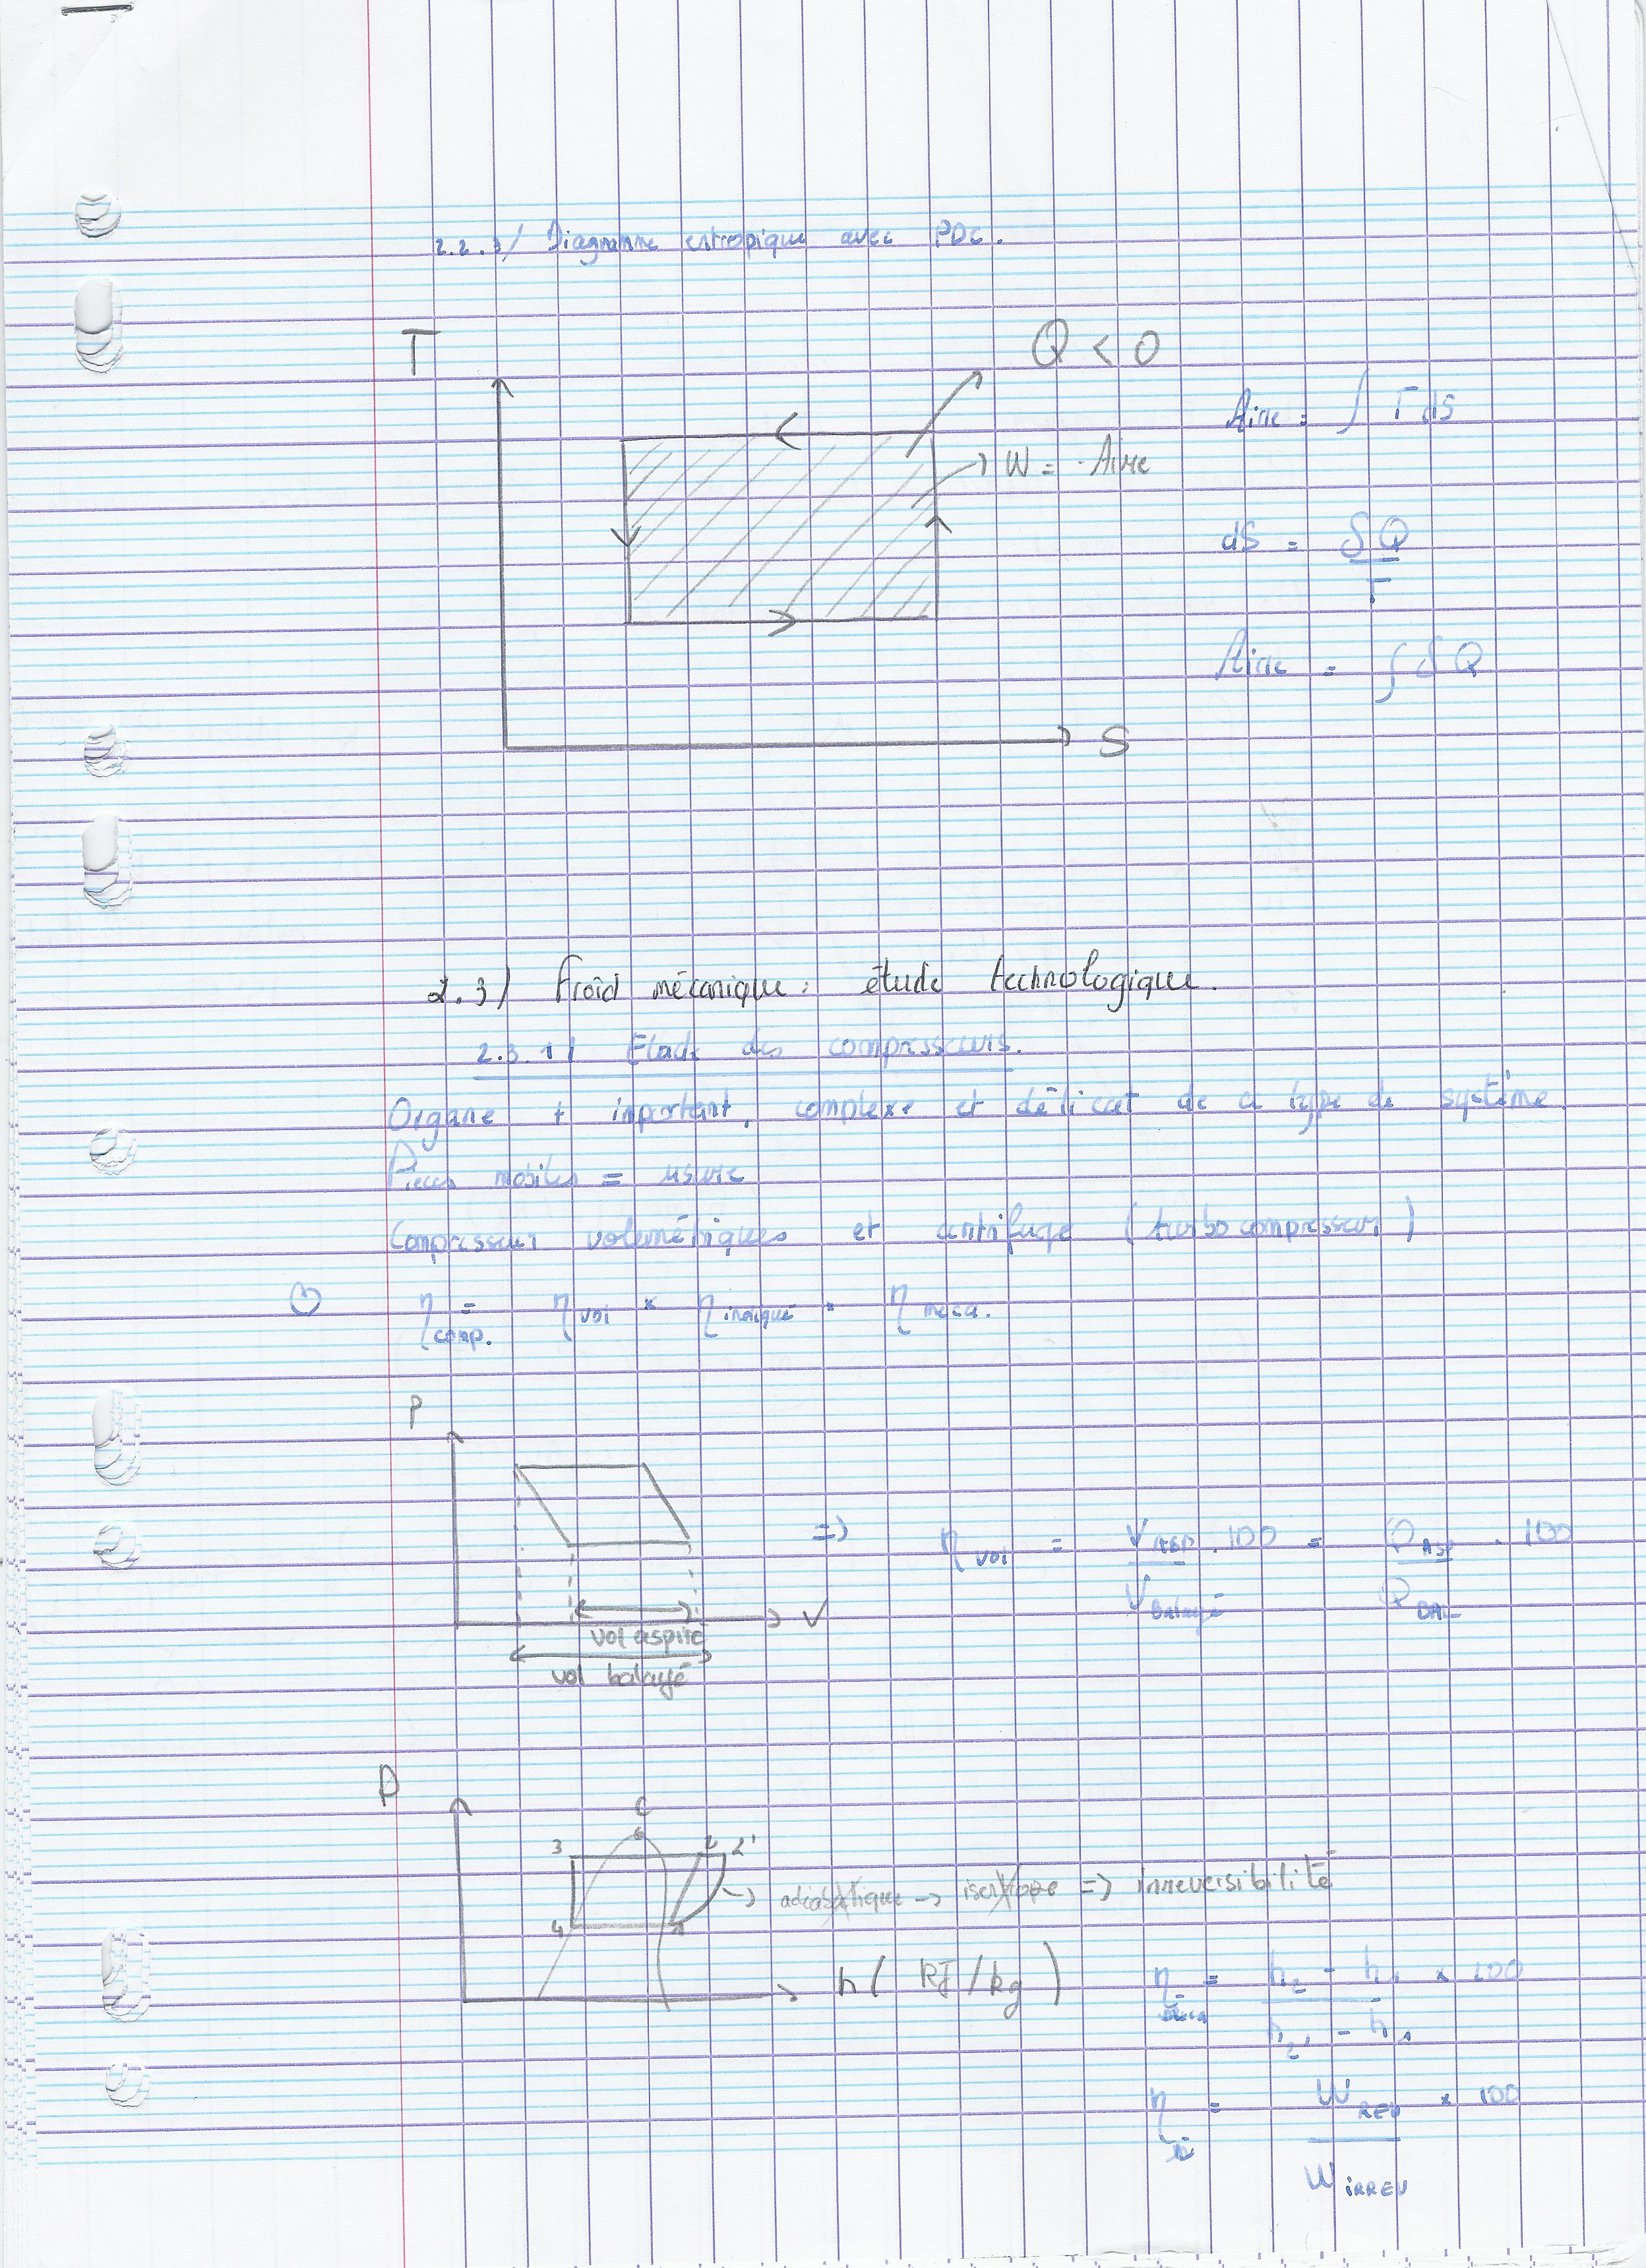 2.2.3/ Diagramme entropique avec PDC.
T
Q < 0
Aire = ∫ T dS
W = - Aire
dS = δQ / T
Aire = ∫ δQ
S
2.3/ Froid mécanique : étude technologique.
2.3.1/ Etude des compresseurs.
Organe + important, complexe et délicat de ce type de système
Pieces mobiles = usure
Compresseur volumétriques et centrifuge (turbocompresseur)
η comp. = η vol × η indiqué × η meca.
P
=> η vol = V ASP / V Balayé . 100 = Q Asp / Q BAL . 100
V
vol aspiré
vol balayé
P
C
3 2 2'
-> adiabatique -> isentrope => irreversibilité
4 1
h ( kJ/kg )
η = h2 - h1 / h2' - h1 × 100
η = W REV / W iRREV × 100